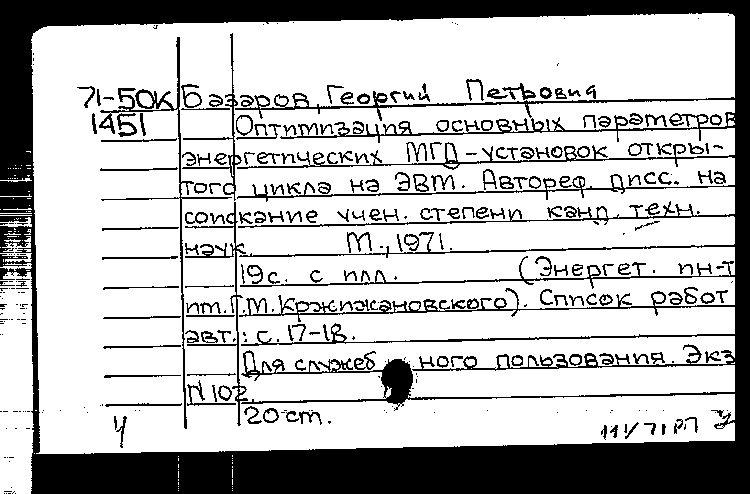 71-50К Базаров, Георгий Петрович
1451 Оптимизация основных параметров
энергетических МГД-установок откры-
того цикла на ЭВМ. Автореф. дисс. на
соискание учен. степени канд. техн.
наук. М., 1971.
19с. с илл. (Энергет. ин-т
им. Г.М. Кржижановского). Список работ
авт.: с. 17-18.
Для служебного пользования. Экз
N 102.
20 cm.